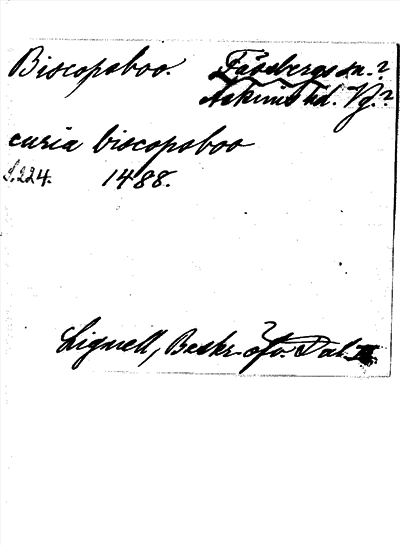 Biscopsboo. Fässbergs sn.?
Askims hd. Vg.?
curia biscopsboo
S. 224. 1488.
Lignell, Beskr. öfv. Dal II